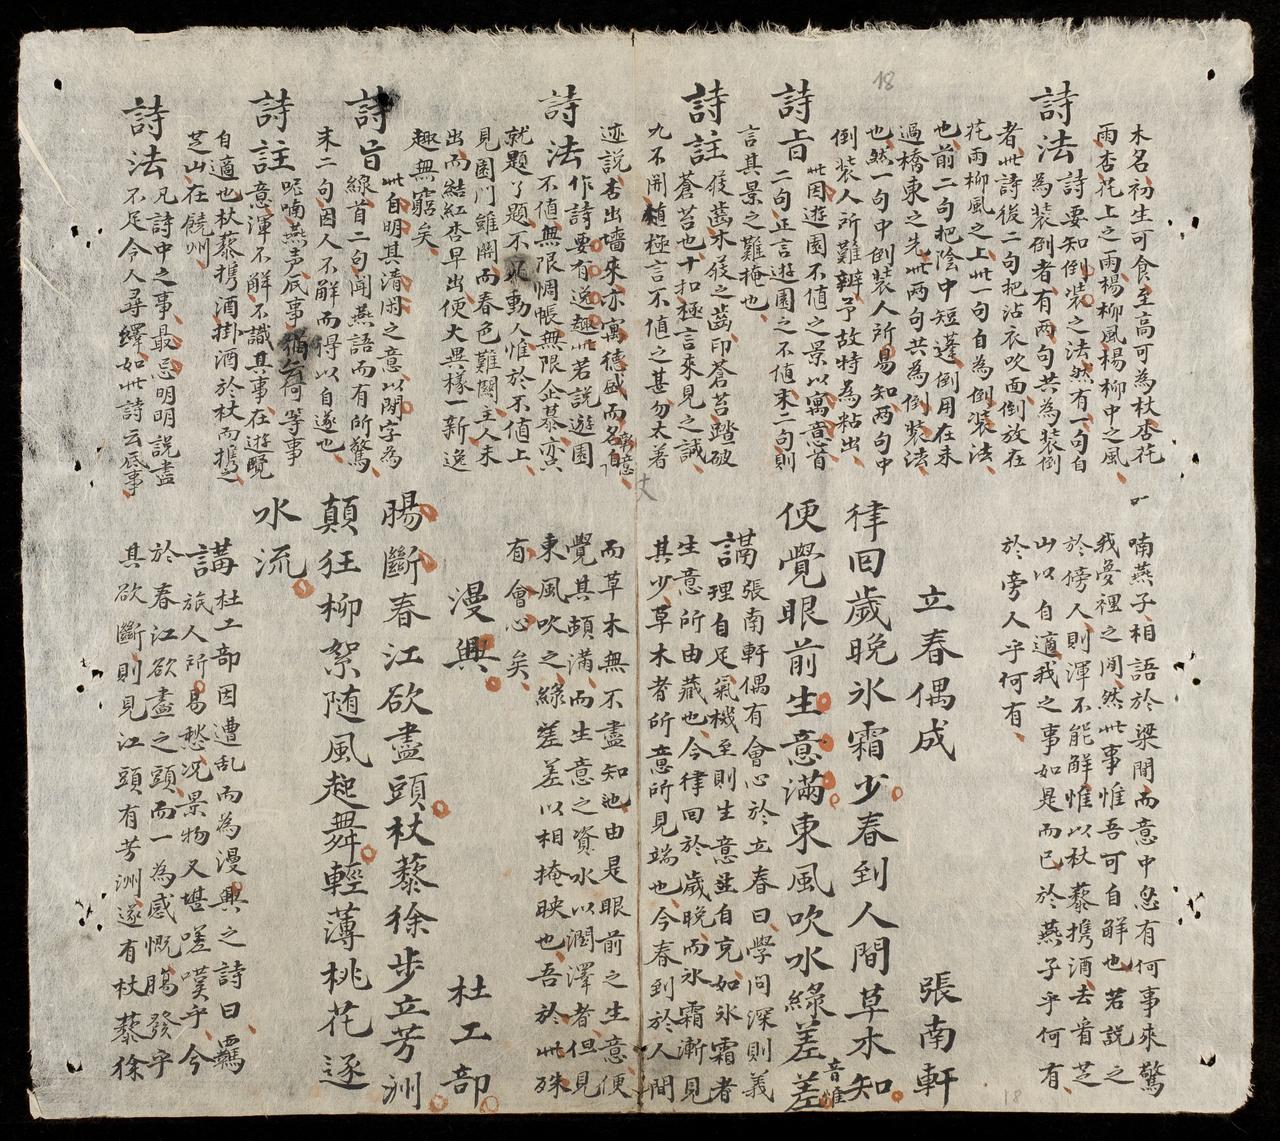 18
木名初生可食至高可為杖杏花
雨杏花上之雨楊柳風楊柳中之風
詩法詩要知倒裝之法然有一句自
為裝倒者有两句共為裝倒
者此詩後二句把沾衣吹面倒放在
花雨柳風之上此一句自為倒裝法
也前二句把陰中短蓬倒用在末
過橋東之先此两句共為倒裝法
也然一句中倒裝人所易知两句中
倒裝人所難辨予故特為粘出
詩旨此因遊園不值之景以寓意首
二句正言遊園之不值末二句則
言其景之難掩也
詩註屐齒木屐之齒印蒼苔踏破
蒼苔也十扣極言來見之誠
九不開極言不值之甚勿太著
迹説杏出墻來亦寓德盛而名自
彰意
詩法作詩要有逸趣此若説遊園
不值無限惆悵無限企慕亦只
就題了題不動人惟於不值上
見園門雖關而春色難關主人未
出而結紅杏早出便大異樣一新逸
趣無窮矣
詩旨此自明其清閒之意以閒字為
線首二句聞燕語而有所驚
末二句因人不解而得以自遂也
詩註呢喃燕声底事猶云何等事
意渾不解不識其事在遊覽
自適也杖藜携酒掛酒於杖而携之
芝山在饒州
詩法凡詩中之事最忌明明説盡
不足令人尋繹如此詩云底事
喃燕子相語於梁間而意中您有何事來驚
我夢裡之閒然此事惟吾可自解也若説之
於傍人則渾不能解惟以杖藜携酒去看芝
山以自適我之事如是而已於燕子乎何有
於旁人乎何有
立春偶成 張南軒
律回歲晚氷霜少春到人間草木知
便覺眼前生意滿東風吹水綠差差
音雌
講張南軒偶有會心於立春日學问深則義
理自足氣機至則生意並自克如氷霜者
生意所由藏也今律回於歲晚而氷霜漸見
其少草木者所意所見端也今春到於人間
而草木無不盡知也由是眼前之生意便
覺其頓滿而生意之資水以潤澤者但見
東風吹之綠差差以相掩映也吾於此殊
有會心矣
漫興 杜工部
腸斷春江欲盡頭杖藜徐步立芳洲
顛狂柳絮随風起舞輕薄桃花逐
水流
講杜工部因遭乱而為漫興之詩曰羈
旅人所易愁况景物又堪嗟嘆乎今
於春江欲盡之頭而一為感慨腸發乎
其欲斷則見江頭有芳洲遂有杖藜徐
18